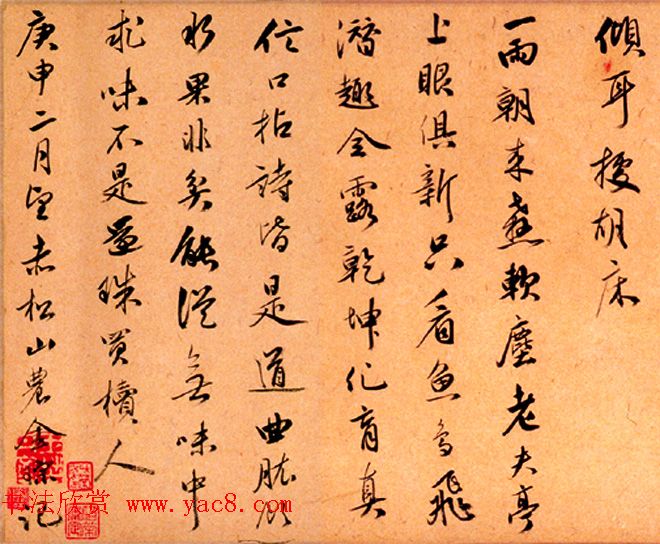 傾耳據胡床
一雨朝来軟塵老夫亭
上眼俱新只看魚鳥飛
潛趣全露乾坤化育真
信口拈詩皆是道曲肱飲
水果非貧能從無味中
求味不是還珠買櫝人
庚申二月望赤松山農金湜記
书法欣赏 www.yac8.com